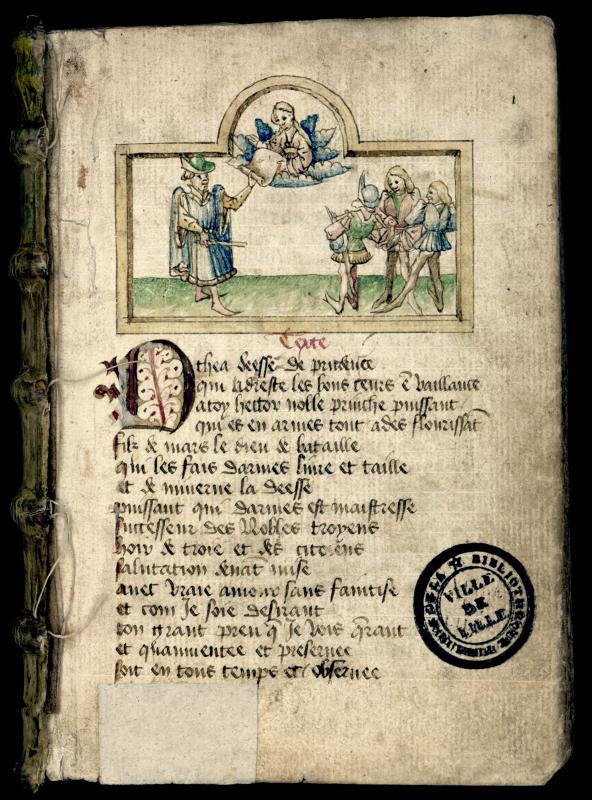 Texte
Othea deesse de prudence
qui adreste les bons ceurs e vaillance
a toy hector noble prinche puissant
qui es en armes tout ades flourissat
filz de mars le dieu de bataille
qui les fais darmes liure et taille
et de minerue la deesse
puissant qui darmes est maistresse
successeur des Nobles troyens
hoir de troie et des citoiens
salutation deuat mise
auec vraie amour sans faintise
et com Je soie desirant
ton grant preu q Je vois qrant
et quaumentee et preseruee
soit en tous temps et obseruee
VILLE
DE
LILLE